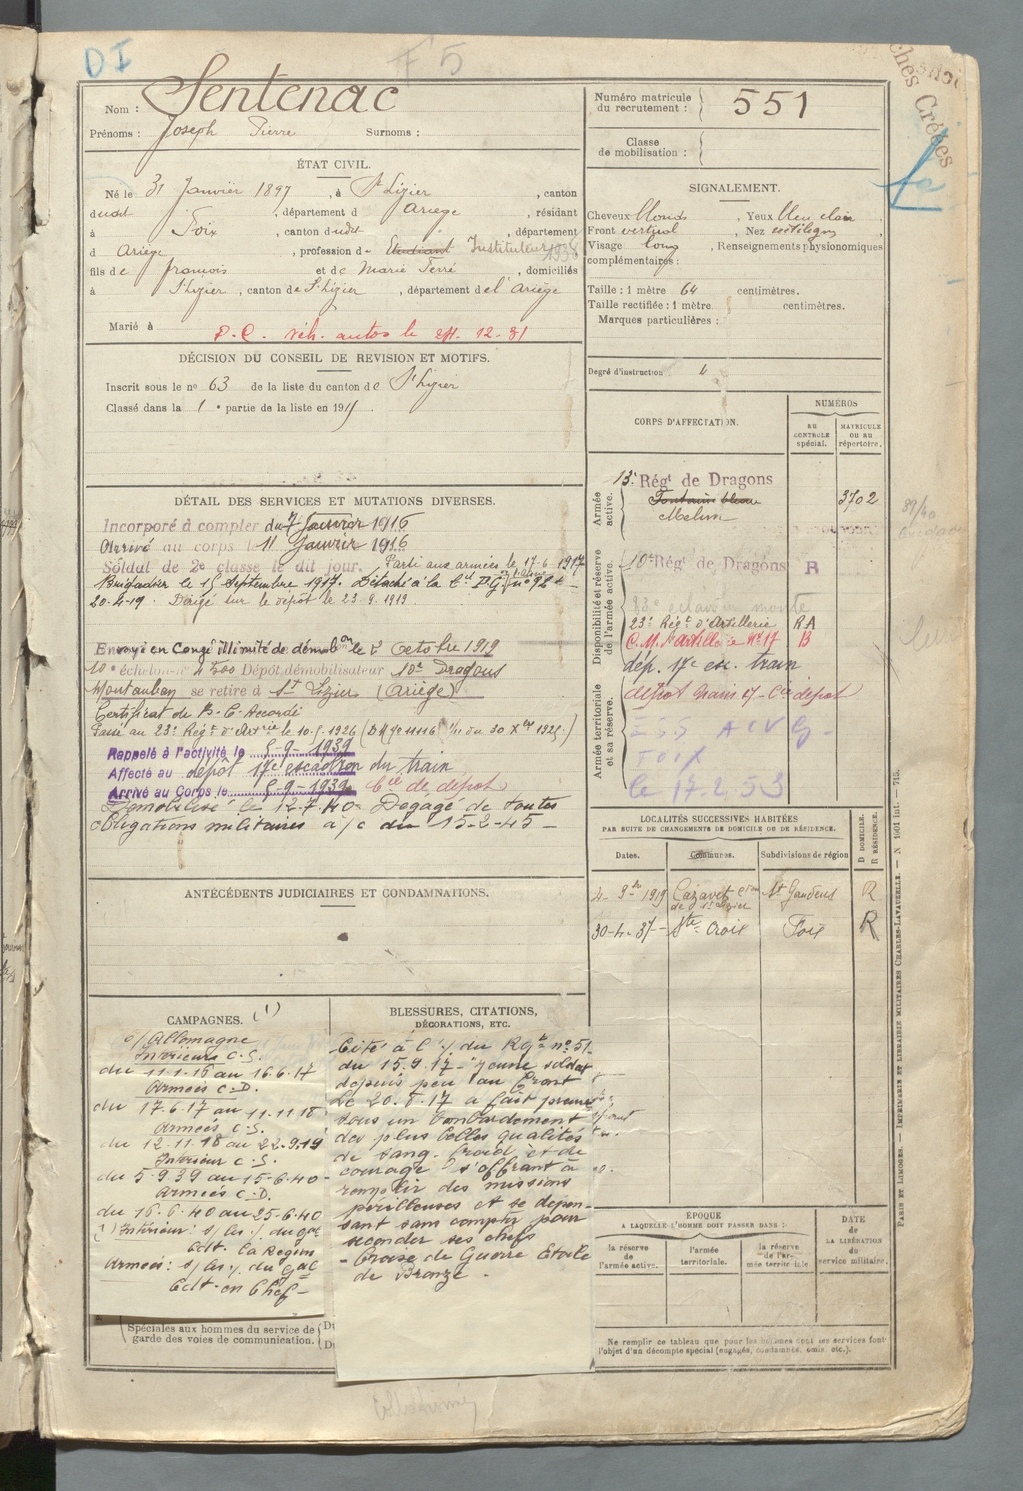 DI
F5
Nom : Sentenac
Prénoms : Joseph Pierre Surnoms :
ÉTAT CIVIL.
Né le 31 Janvier 1897, à St Lizier, canton
dudit, département d Ariège, résidant
à Foix, canton dudit, département
d Ariège, profession d Etudiant Instituteur 1938
fils de françois et de Marie Ferré, domiciliés
à St Lizier, canton de St Lizier, département de l'Ariège
Marié à
P.C. véh. autos le 12-31
DÉCISION DU CONSEIL DE REVISION ET MOTIFS.
Inscrit sous le no 63 de la liste du canton de St Lizier
Classé dans la 1e partie de la liste en 191
DÉTAIL DES SERVICES ET MUTATIONS DIVERSES.
Incorporé à compter du 7 Janvier 1916
Arrivé au corps le 11 Janvier 1916
Soldat de 2e classe le dit jour. Parti aux armées le 17-6 1917
Brigadier le 15 Septembre 1917. Détaché à la
20-4-19. Dirigé sur le dépôt le 23.9.1919
Envoyé en Congé illimité de démobon le 2 Octobre 1919
10e échelon no 2500 Dépôt démobilisateur 10e Dragons
Montauban se retire à St Lizier (Ariège)
Certificat de B.C. Accordé
Passé au 23e Régt d'Artrie le 10.5.1926 (DM no 11116 1/11 du 30 Xer 1925)
Rappelé à l'activité le 5-9-1939
Affecté au dépôt 17e escadron du train
Arrivé au Corps le 5-9-1939 Cie de dépôt
Démobilisé le 12.7.40. Dégagé de toutes
obligations militaires à/c du 15-2-45
ANTÉCÉDENTS JUDICIAIRES ET CONDAMNATIONS.
CAMPAGNES. (1)
c/ Allemagne
Intérieurs C.S.
du 11-1-16 au 16.6.17
Armées C.D.
du 17.6.17 au 11.11.18
Armées C.S.
du 12.11.18 au 22.9.19
Intérieur C.S.
du 5.9.39 au 15-6.40
Armées C.D.
du 16.6.40 au 25-6.40
(1) Intérieur : s/ les / du Gal
Cdt. la Région
Armées : s/ les / du Gal
Cdt-en Chef
Spéciales aux hommes du service de
garde des voies de communication.
BLESSURES, CITATIONS,
DÉCORATIONS, ETC.
Cité à l'/ du Rgt no 51
du 15.9.17 "jeune soldat
depuis peu au front
Le 20.8.17 a fait preuve
sous un bombardement
des plus belles qualités
de sang. froid et de
courage s'offrant à
remplir des missions
périlleuses et se dépen-
sant sans compter pour
seconder ses chefs
- Croix de Guerre Etoile
de Bronze.
Numéro matricule
du recrutement : 551
Classe
de mobilisation :
SIGNALEMENT.
Cheveux blonds, Yeux bleu clair
Front vertical, Nez rectiligne
Visage long, Renseignements physionomiques
complémentaires :
Taille : 1 mètre 64 centimètres.
Taille rectifiée : 1 mètre centimètres.
Marques particulières :
Degré d'instruction 4
CORPS D'AFFECTATION.
NUMÉROS
AU CONTROLE spécial.
MATRICULE OU AU répertoire.
Armée active.
13e Régt de Dragons 3702
Fontainebleau
Melun
Disponibilité et réserve de l'armée active.
10e Régt de Dragons R
23e Régt d'Artillerie RA
C.M. d'artillerie No 17 B
dép. 17e esc. train
Armée territoriale et sa réserve.
dépôt train 17- Cie dépôt
FOIX
le 17.2.53
LOCALITÉS SUCCESSIVES HABITÉES
PAR SUITE DE CHANGEMENTS DE DOMICILE OU DE RÉSIDENCE.
Dates. Communes. Subdivisions de région
D DOMICILE. R RÉSIDENCE.
1919 Cazavet con de St Lizier St Gaudens R
30-4-37 Ste Croix Foix R
ÉPOQUE
A LAQUELLE L'HOMME DOIT PASSER DANS :
la réserve de l'armée active.
l'armée territoriale.
la réserve de l'armée territoriale
DATE
de
LA LIBÉRATION
du
service militaire.
Ne remplir ce tableau que pour les hommes dont les services font
l'objet d'un décompte spécial (engagés, condamnés, omis, etc.).
PARIS ET LIMOGES. — IMPRIMERIE ET LIBRAIRIE MILITAIRES CHARLES-LAVAUZELLE. — N 1601 int. — 715.